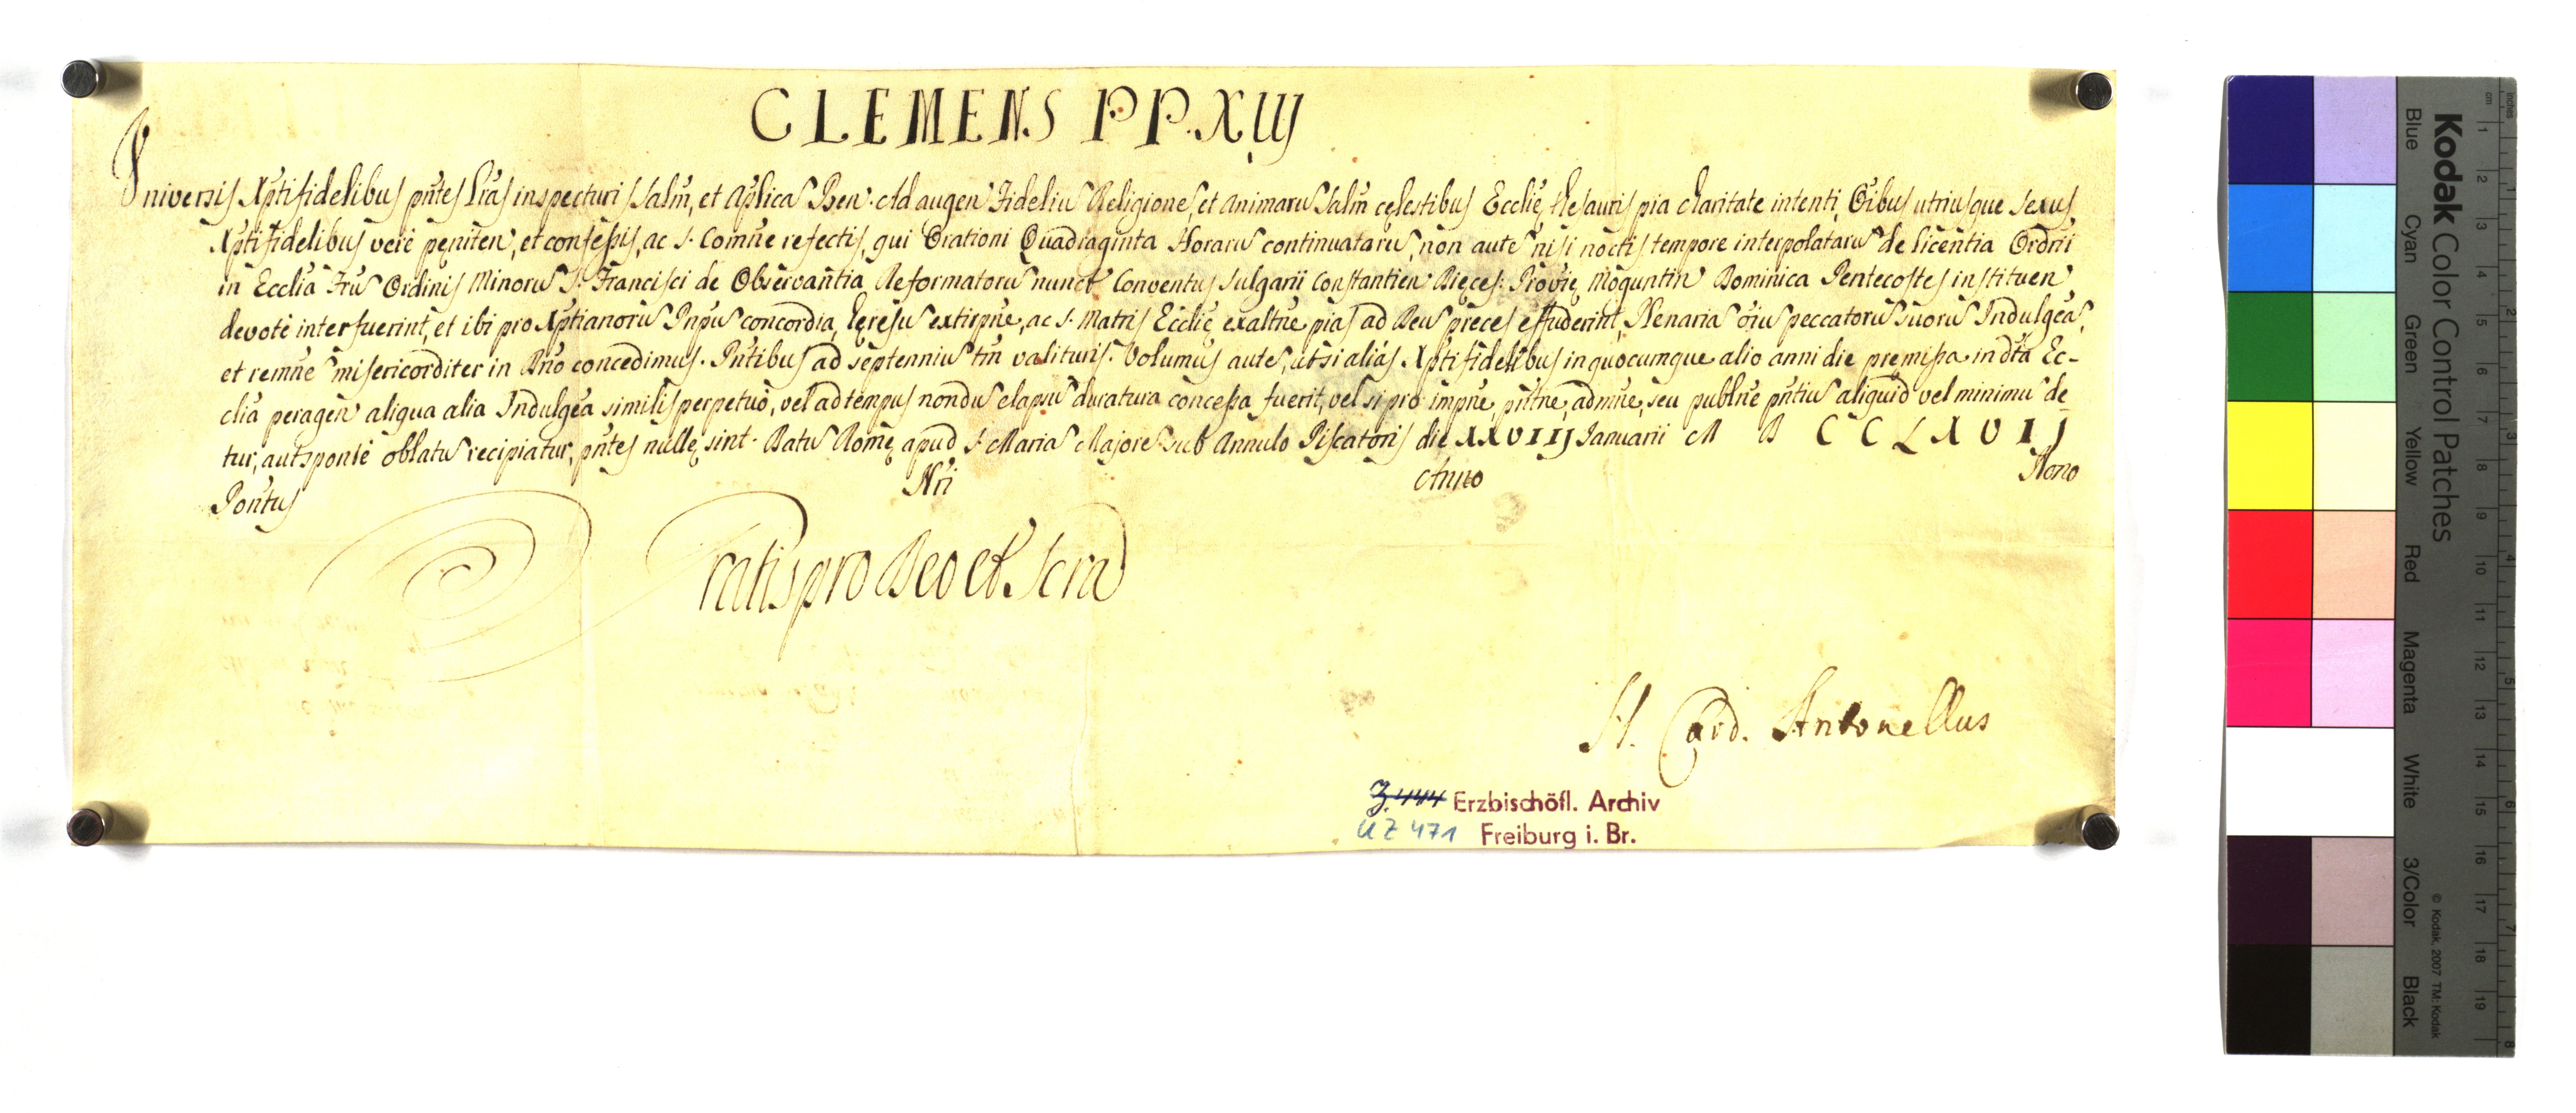 CLEMENS P P. XIIJ
Universis Xptifidelibus pñtes Lrãs inspecturis Salm̃, et Aplicã Ben. Ad augen Fideliũ Religionẽ, et Animarũ Salm̃ cęlestibus Ecclię thesauris pia charitate intenti, Oĩbus utriusque sexus
Xptifidelibus verè pęniten, et confeßis, ac S. Comñe refectis, qui Orationi Quadraginta Horarũ continuatarũ, non autẽ nisi noctis tempore interpolatarũ de licentia Ordrii
in Ecclia Frũ Ordinis Minorũ S. Francisci de Observantia Reformatorũ nunct Conventus Sulgarii Constantien Dięces: Provię Moguntin Dominica Pentecostes instituen
devotè interfuerint, et ibi pro Xptianorũ Pnpũ concordia, hęresũ extirpñe, ac S. Matris Ecclię exaltñe pias ad Deũ preces effuderint, Plenariã oĩũ peccatorũ suorũ Indulgeã,
et remñe misericorditer in Dño concedimus. Pñtibus ad septenniũ tm̃ valituris. Volumus autẽ, ut si aliàs Xptifidelibus in quocumque alio anni die pręmißa in dta Ec-
clia peragen aliqua alia Indulgea similis perpetuò, vel ad tempus nondũ elapsũ duratura conceßa fuerit, vel si pro impñe, pñtñe, admñe, seu publñe pñtiũ aliquid vel minimũ de
tur, aut sponte oblatũ recipiatur, pñtes nullę sint. Datũ Romę apud S. Mariã Majorẽ sub Annulo Piscatoris die XXVIIJ Januarii M D C C L X V I J
Pontus Nri Anno Nono
Gratis pro Deo et Scra
H. Card. Antonellus
Z. 444 Erzbischöfl. Archiv
UZ 471 Freiburg i. Br.
Kodak Color Control Patches
© Kodak, 2007 TM: Kodak
Blue Cyan Green Yellow Red Magenta White 3/Color Black
inches 1 2 3 4 5 6 7 8
cm 1 2 3 4 5 6 7 8 9 10 11 12 13 14 15 16 17 18 19